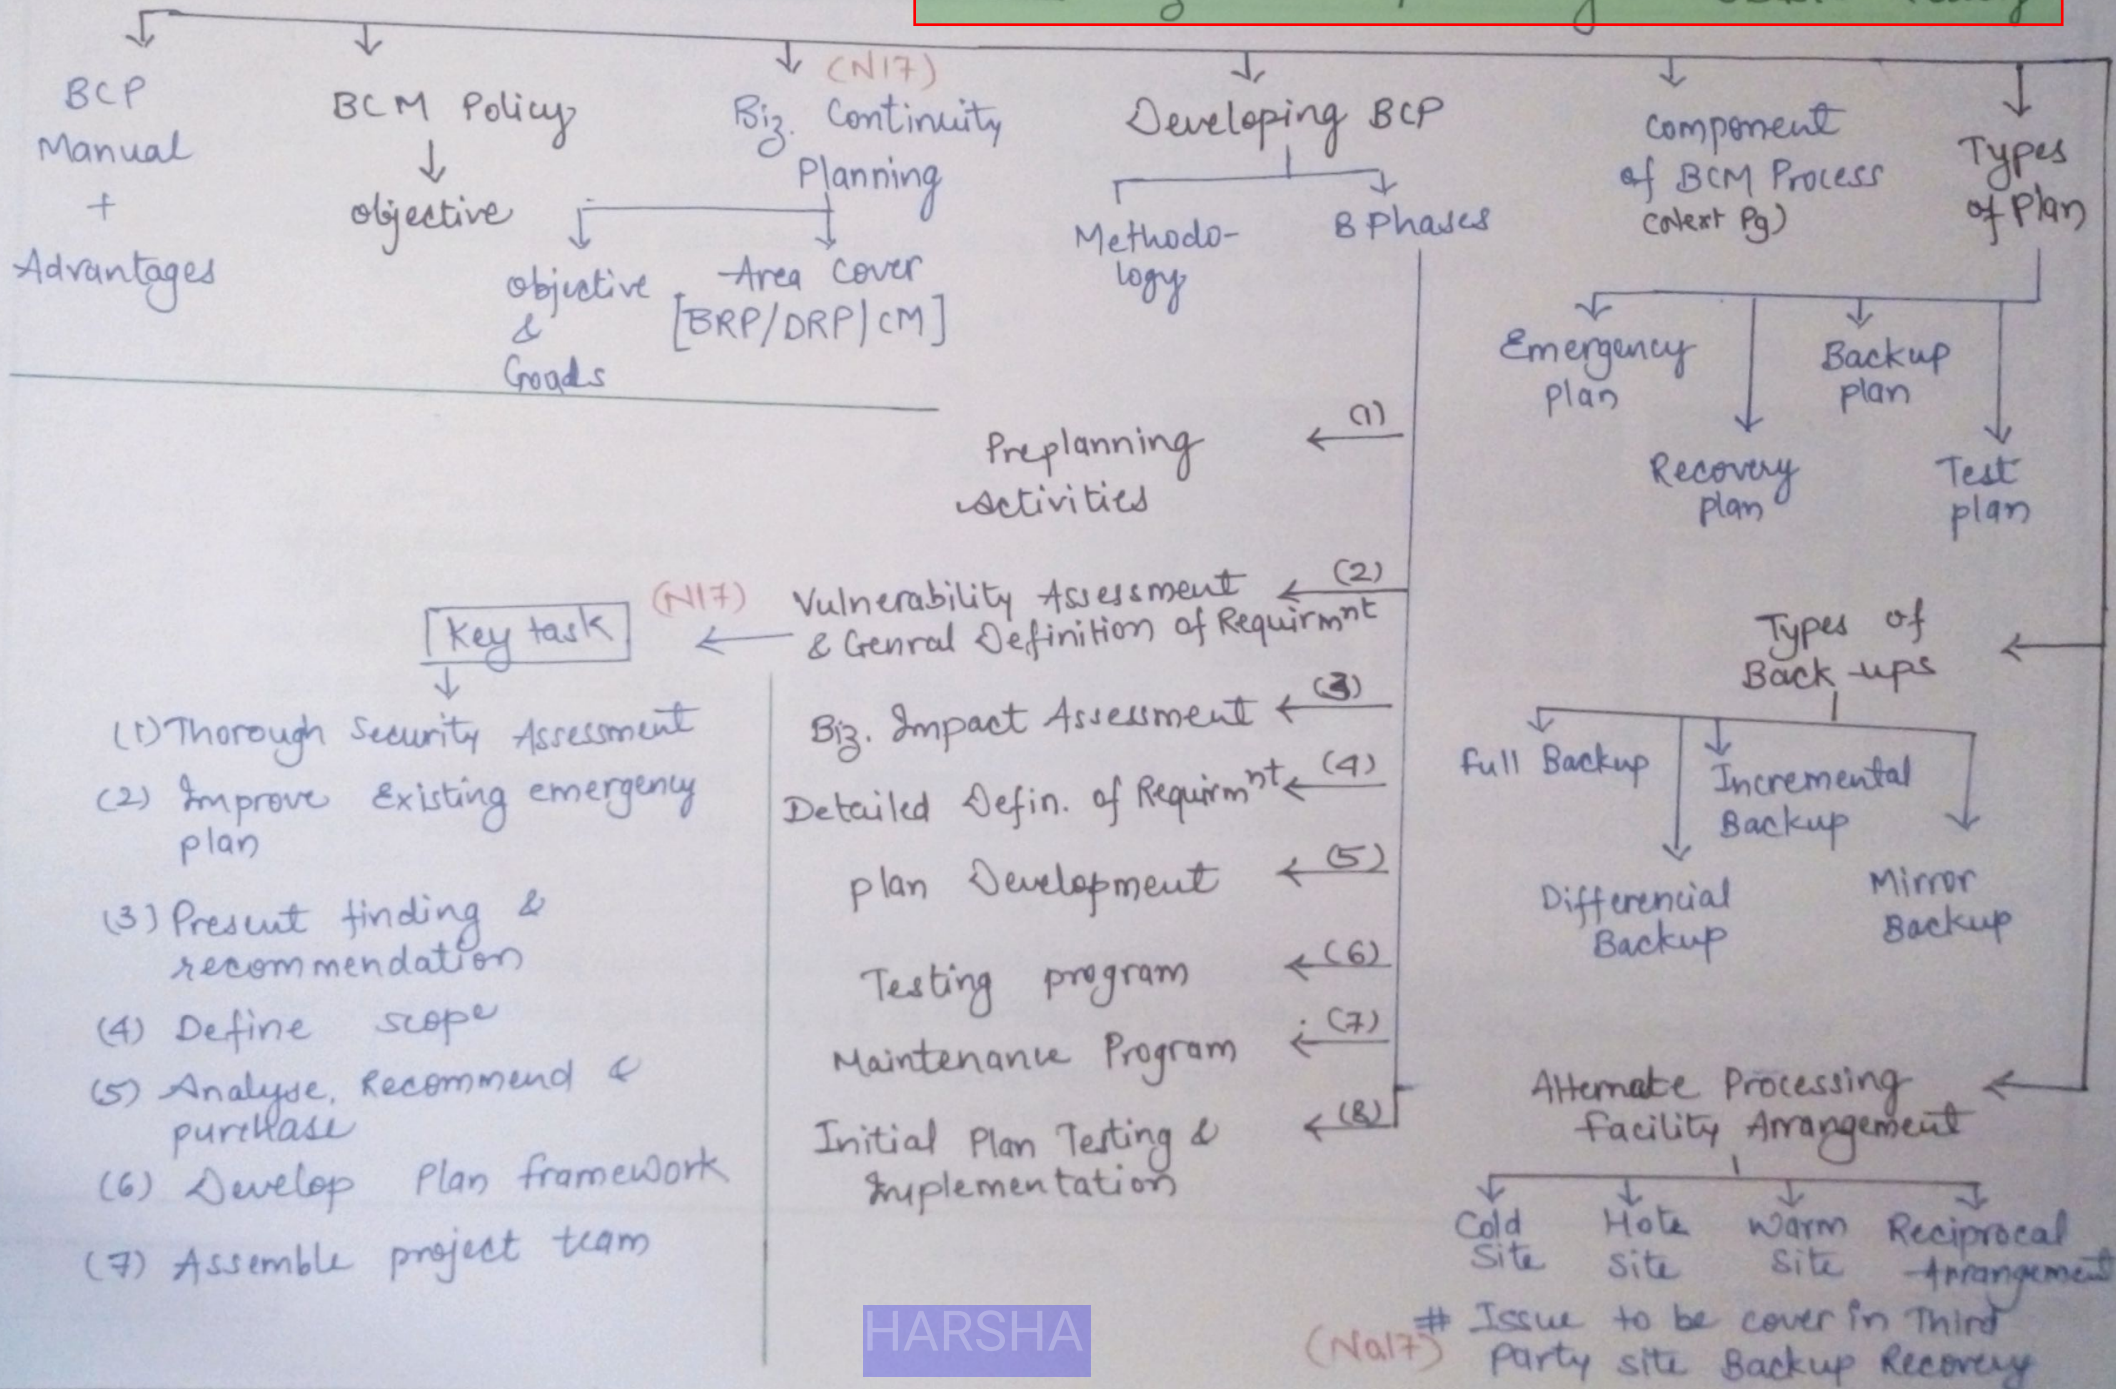 BCP
Manual
+
Advantages
BCM Policy
objective
(N17)
Biz. Continuity
Planning
objective
&
Goads
Area Cover
[BRP/DRP/CM]
Developing BCP
Methodo-
logy
8 Phases
Component
of BCM Process
(Next Pg)
Types
of Plan
Emergency
plan
Recovery
plan
Backup
plan
Test
plan
(1)
Preplanning
activities
(2)
Vulnerability Assessment
& Genral Definition of Requirmnt
(N17)
Key task
(1) Thorough Security Assessment
(2) Improve Existing emergency
plan
(3) Present finding &
recommendation
(4) Define scope
(5) Analyse, Recommend &
purchase
(6) Develop Plan framework
(7) Assemble project team
(3)
Biz. Impact Assessment
(4)
Detailed Defin. of Requirmnt
(5)
plan Development
(6)
Testing program
(7)
Maintenance Program
(8)
Initial Plan Testing &
Implementation
Types of
Back ups
Full Backup
Differencial
Backup
Incremental
Backup
Mirror
Backup
Alternate Processing
Facility Arrangement
Cold
Site
Hote
Site
Warm
Site
Reciprocal
Arrangement
# Issue to be cover in Third
Party site Backup Recovery
HARSHA